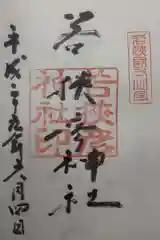 若狭國一之宮
若狭彦神社
若狭彦
神社印
平成二十九年月四日